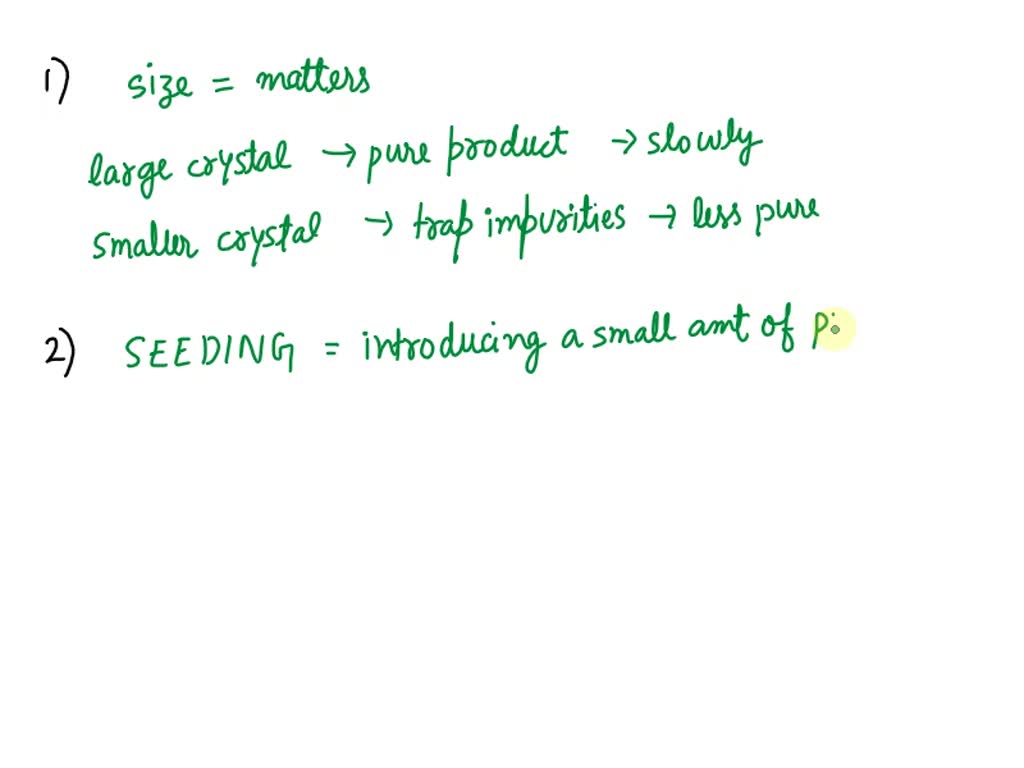 1) size = matters
large crystal → pure product → slowly
smaller crystal → trap impurities → less pure
2) SEEDING = introducing a small amt of p